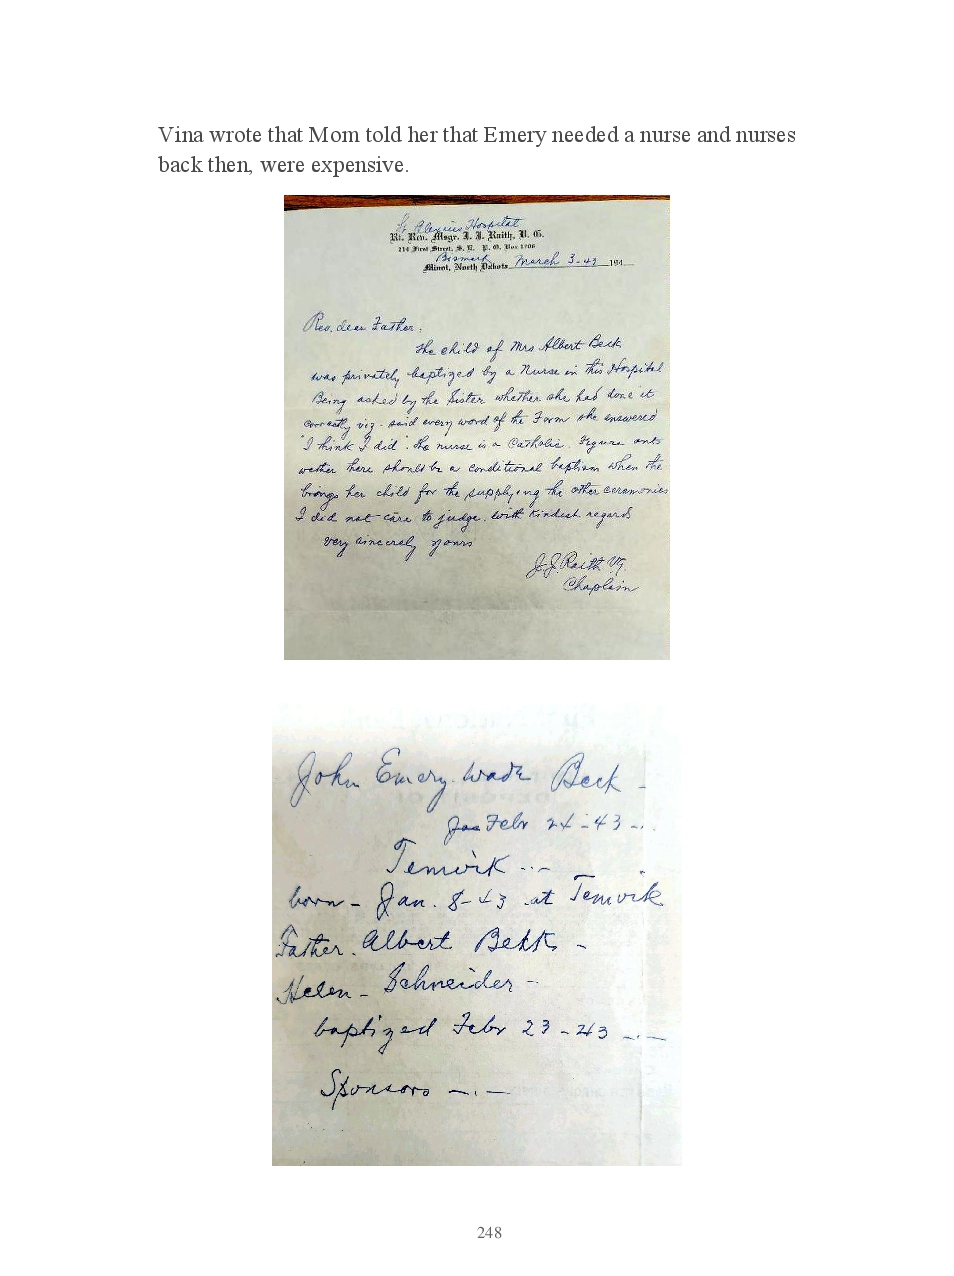 Vina wrote that Mom told her that Emery needed a nurse and nurses
back then, were expensive.
St Alexius Hospital
Rt. Rev. Msgr. J. J. Raith, V. G.
214 First Street, S. E. P. O. Box 1206
Bismark
Minot, North Dakota March 3-43 194
Rev. dear Father.
The child of Mrs Albert Beck
was privately baptized by a Nurse in this Hospital
Being asked by the Sister whether she had done it
correctly viz. said every word of the Form she answered
"I think I did". The nurse is a Catholic. Figure out
wether there should be a conditional baptism when the
brings her child for the supplying the other ceremonies
I did not care to judge. With kindest regards
very sincerely yours
J.J. Raith VG.
Chaplain
John Emery Wade Beck -
Jan Febr 24-43 -..
Temvik ...
born - Jan. 8-43 at Temvik
Father. Albert Bekk -
Helen - Schneider -
baptized Febr 23-43 -.-
Sponsors -.-
248